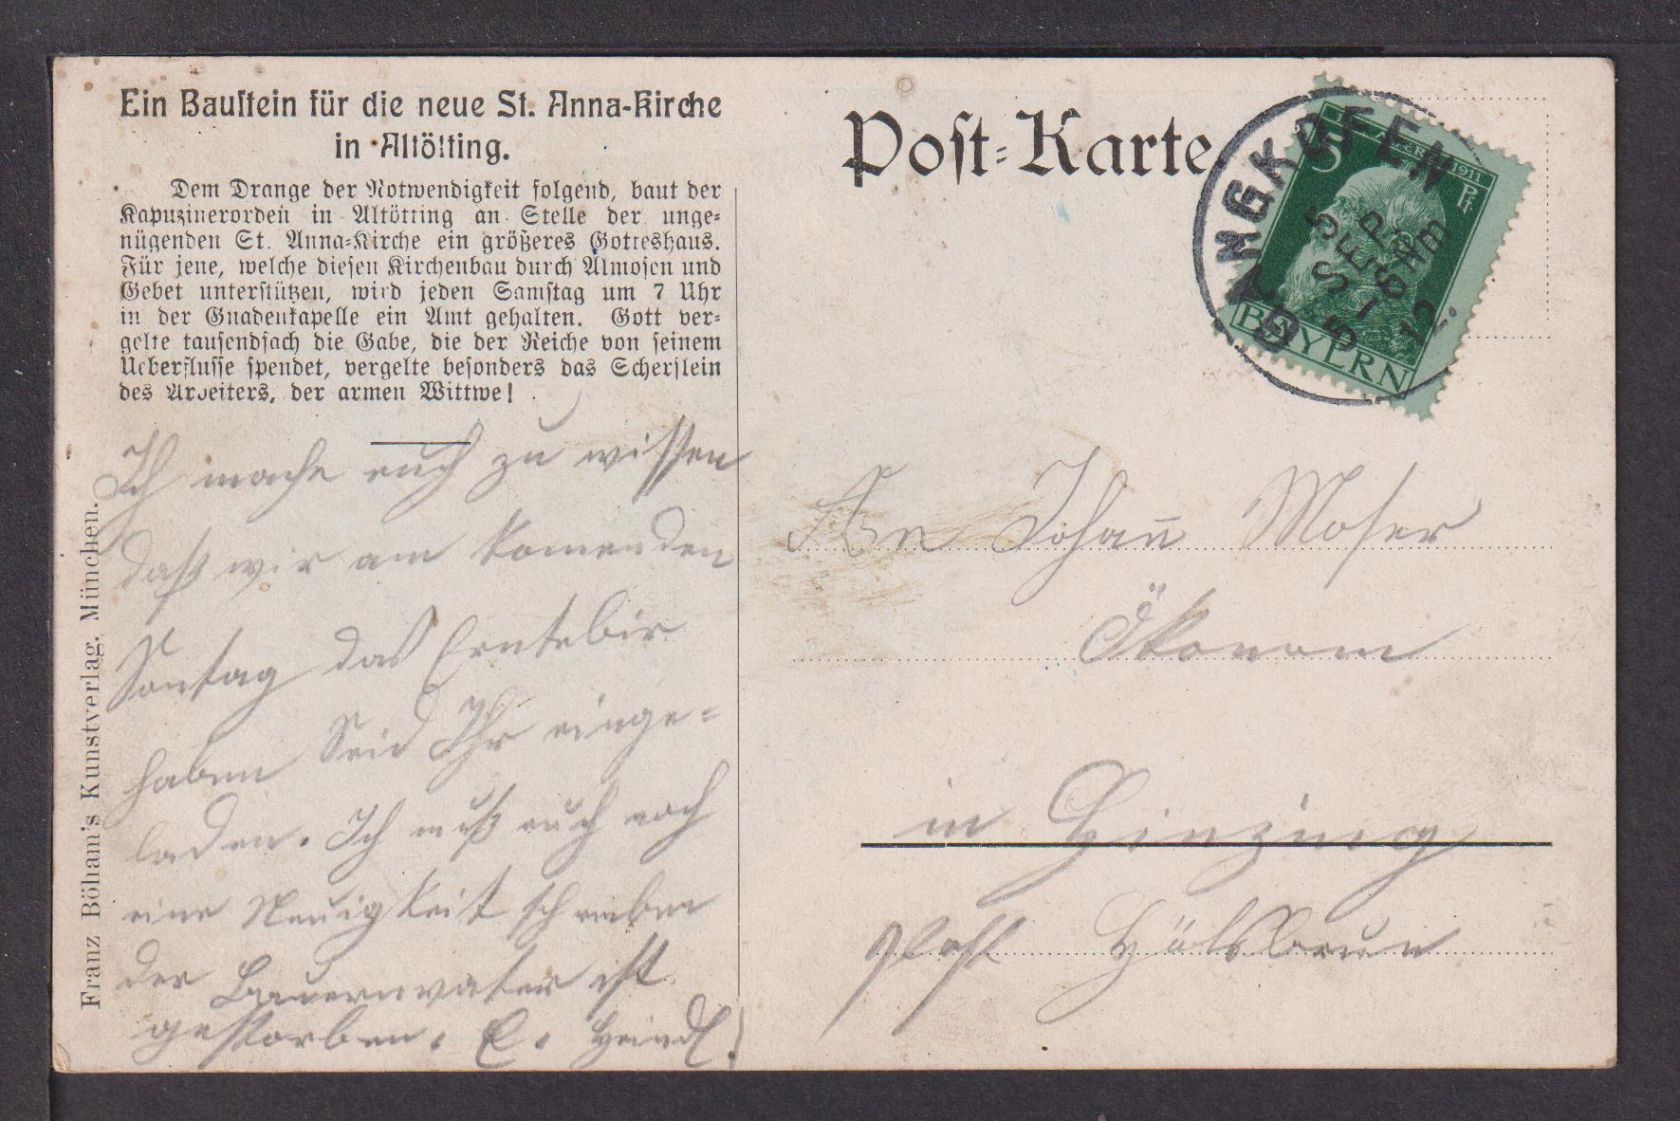 Ein Baustein für die neue St. Anna-Kirche
in Altötting.
Dem Drange der Notwendigkeit folgend, baut der
Kapuzinerorden in Altötting an Stelle der unge-
nügenden St. Anna-Kirche ein größeres Gotteshaus.
Für jene, welche diesen Kirchenbau durch Almosen und
Gebet unterstützen, wird jeden Samstag um 7 Uhr
in der Gnadenkapelle ein Amt gehalten. Gott ver-
gelte tausendfach die Gabe, die der Reiche von seinem
Ueberflusse spendet, vergelte besonders das Scherflein
des Arbeiters, der armen Wittwe!
Ich mache euch zu wissen
daß wir am komenden
Sontag das Erntebir
haben Seid Ihr einge-
laden. Ich muß euch noch
eine Neuigkeit schreiben
der Bauernvater ist
gestorben. E. Heindl!
Franz Böham's Kunstverlag. München.
Post-Karte
LANGKOFEN
5
SEP
12
5 Pf
1911
BAYERN
An Johan̄ Moser
Ökonom
in Ginzing
Post Hölsbrun